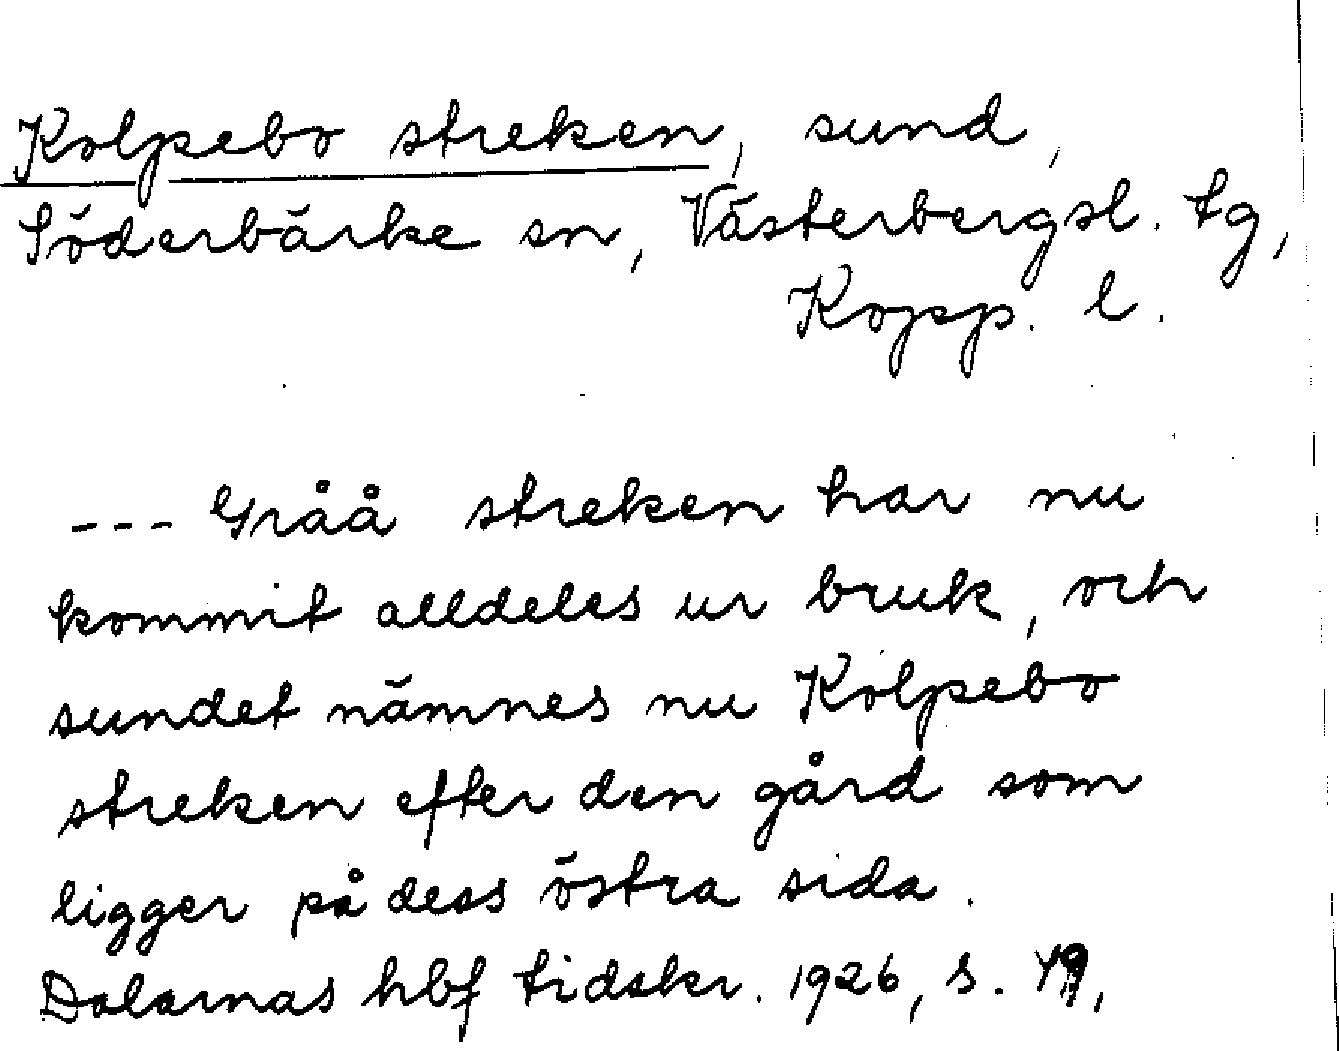 Kolpebo streken, sund,
Söderbärke sn, Västerbergsl. tg,
Kopp. l.
--- Gråå streken har nu
kommit alldeles ur bruk, och
sundet nämnes nu Kolpebo
streken efter den gård som
ligger på dess östra sida.
Dalarnas hbf tidskr. 1926, s.